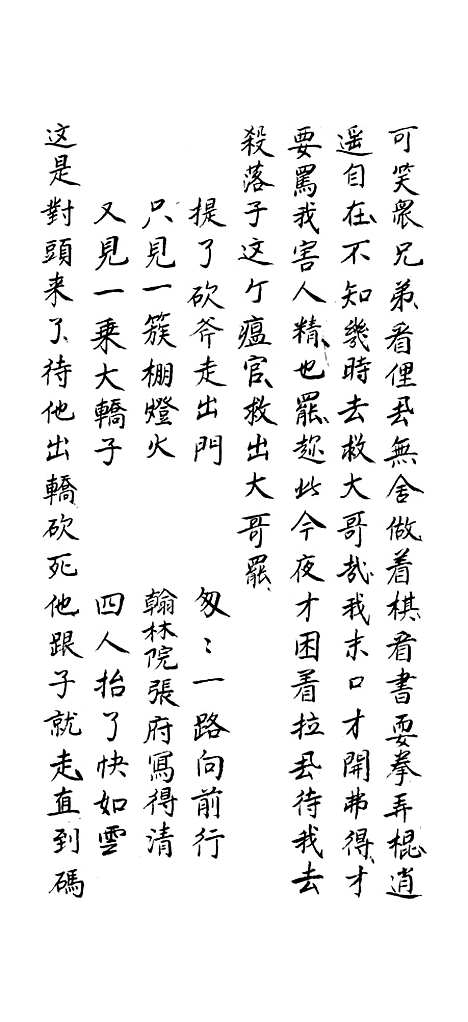 可笑衆兄弟看俚吾無舍做着棋看書耍拳弄棍逍
遥自在不知幾時去救大哥哉我末口才開弗得才
要罵我害人精也罷趂此今夜才困着拉吾待我去
殺落子这个瘟官救出大哥罷
提了砍斧走出門　匆〻一路向前行
只見一簇棚燈火　翰林院張府寫得清
又見一乘大轎子　四人抬了快如雲
这是對頭来了待他出轎砍死他跟子就走直到碼